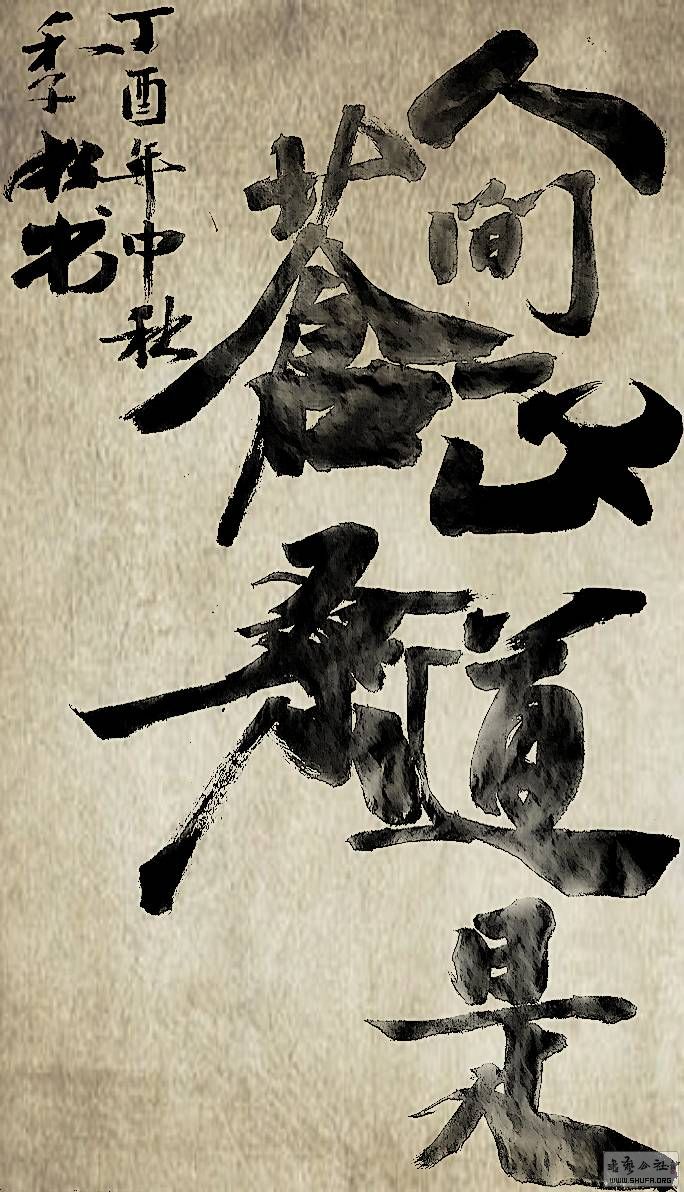 人间正道是
蒼桑
丁酉年中秋
季松书
書藝公社
WWW.SHUFA.ORG